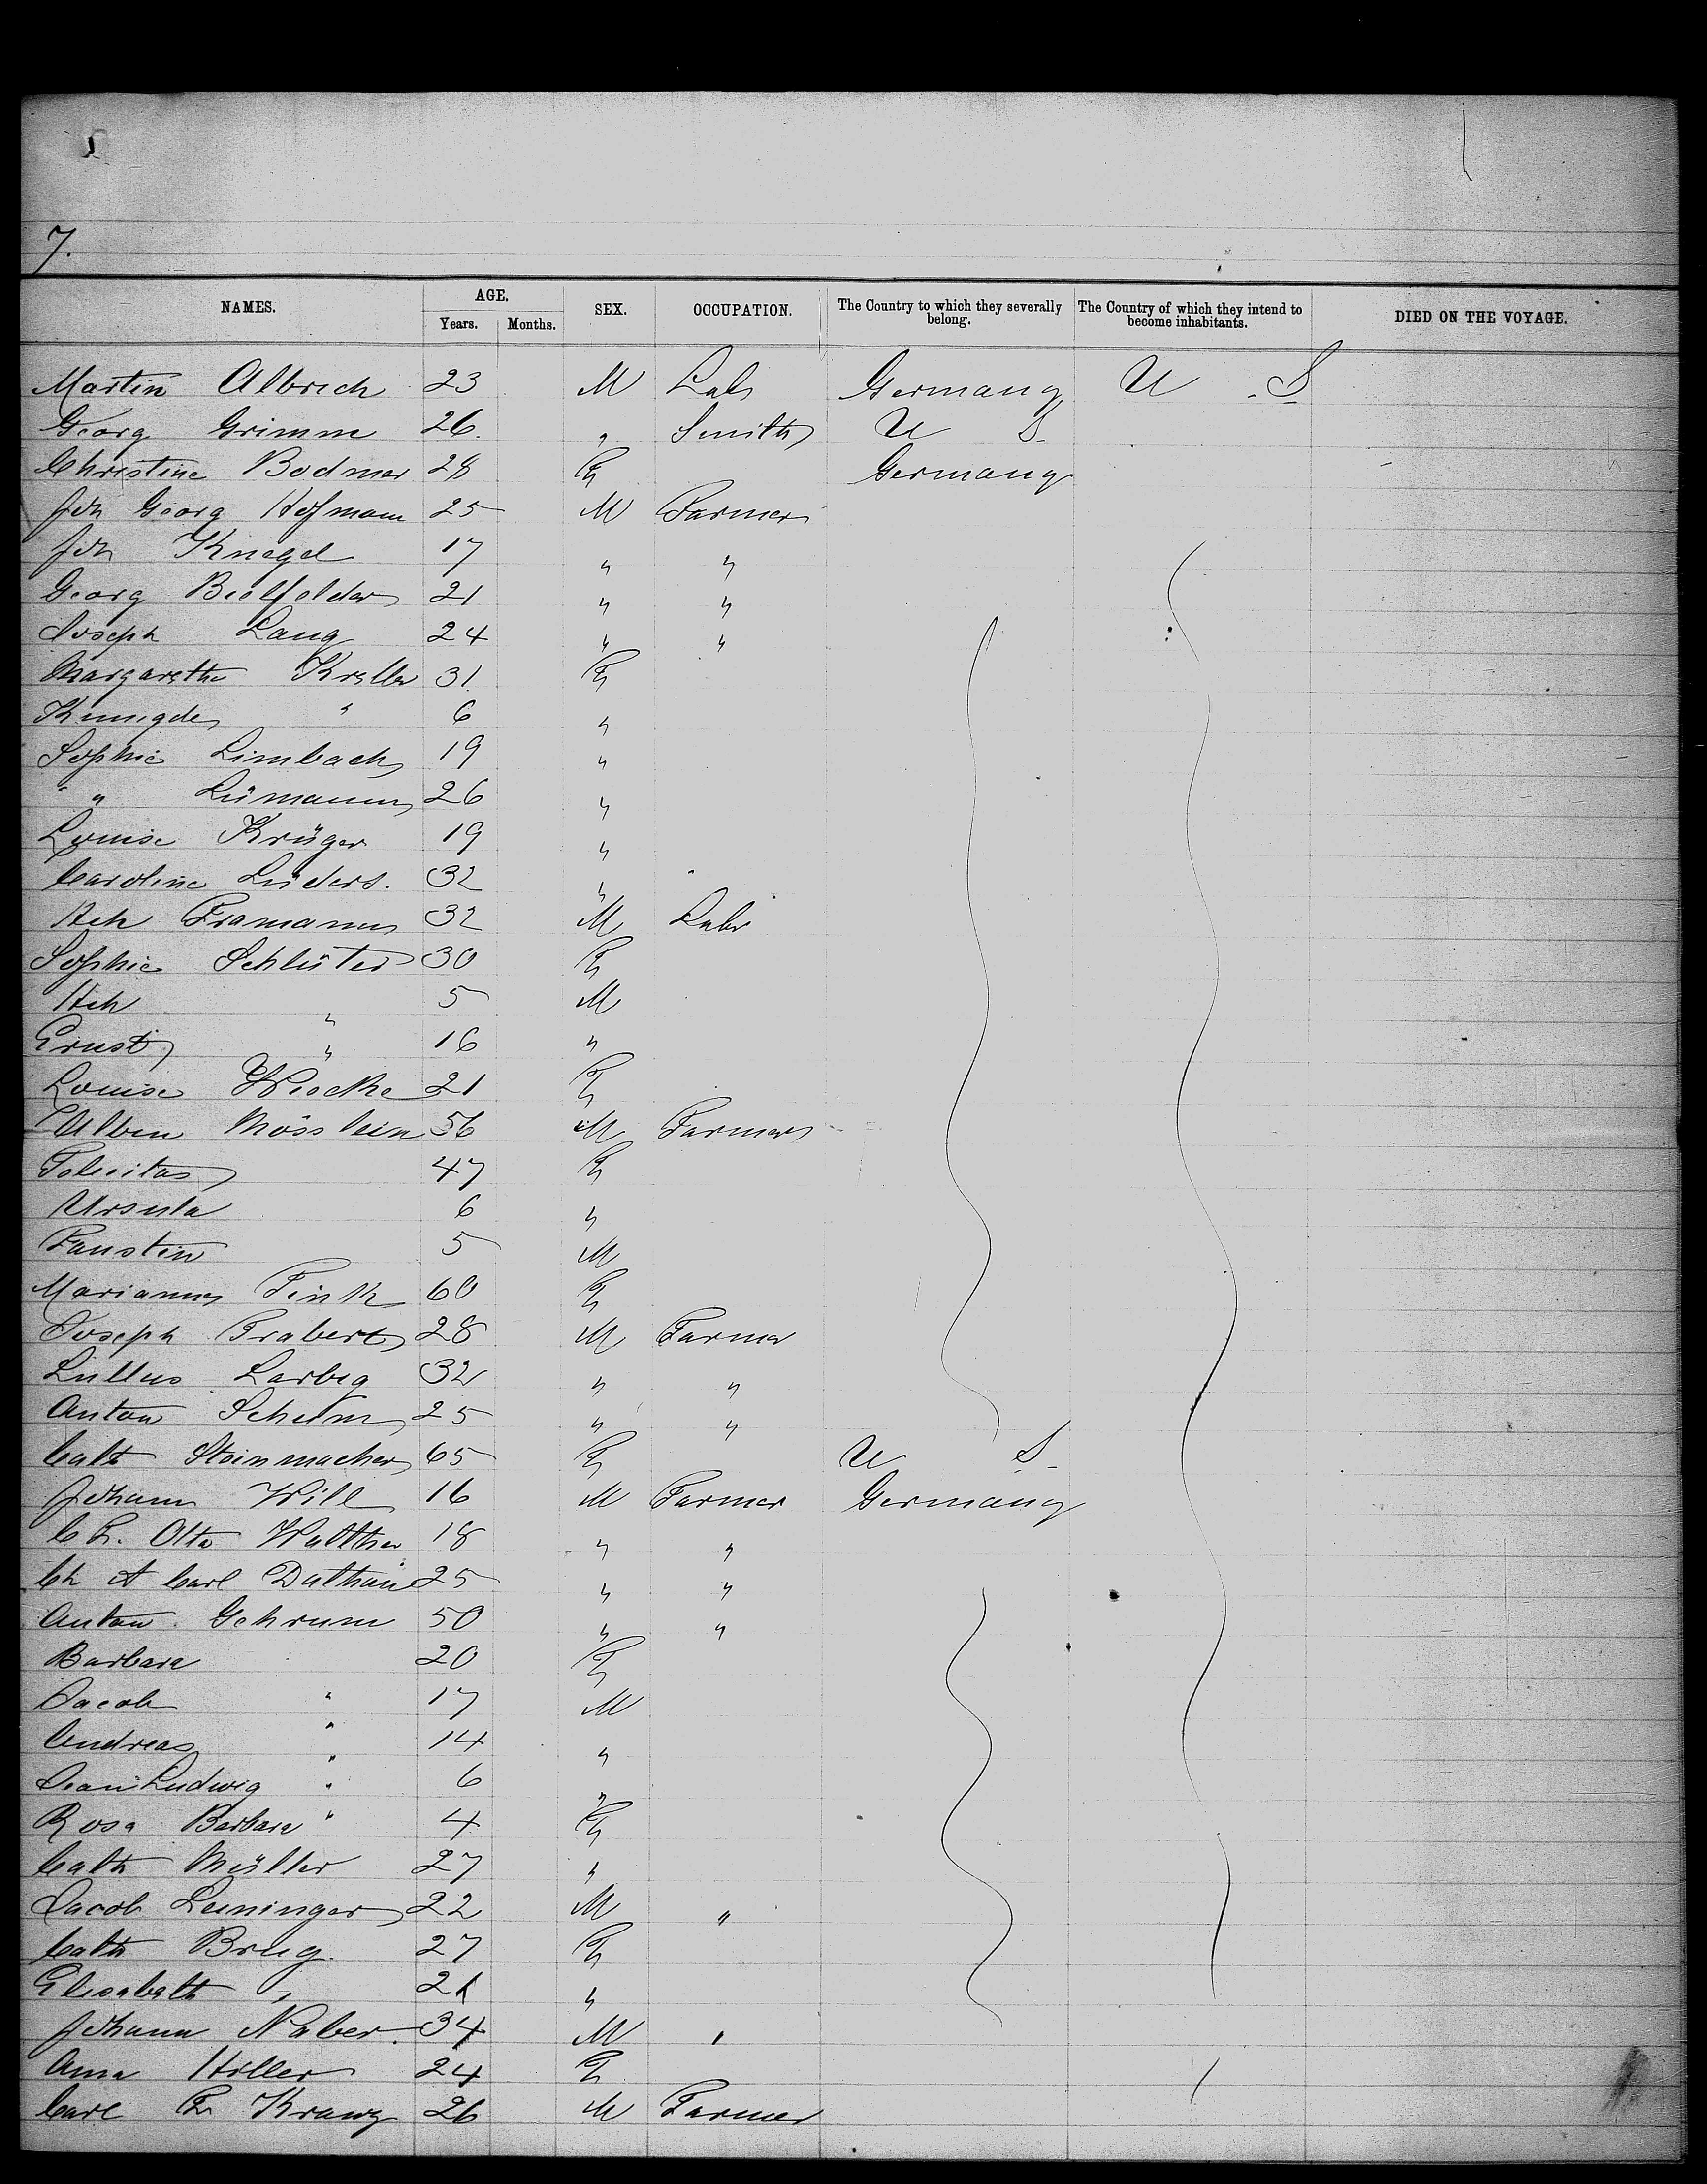 7.
NAMES. AGE. Years. Months. SEX. OCCUPATION. The Country to which they severally belong. The Country of which they intend to become inhabitants. DIED ON THE VOYAGE.
Martin Albrech 23 M Labr Germany U S
Georg Grimm 26. " Smith U S
Christine Bodmer 28 F Germany
Joh Georg Hofmann 25 M Farmer
Joh Knagel 17 " "
Georg Bielfelder 21 " "
Joseph Lang 24 " "
Margarethe Kreller 31 F
Kunigde " 6 "
Sophie Limbach 19 "
" Lümann 26 "
Louise Krüger 19 "
Caroline Lüders. 32 "
Hch Framann 32 M Labr
Sophie Schlüter 30 F
Hch " 5 M
Ernst " 16 "
Louise 21 F
Alben Mösslein 56 M Farmer
Felicitas 47 F
Ursula 6 "
Faustin 5 M
Marianna Fink 60 F
Joseph Trabert 28 M Farmer
Lullus Larbig 32 " "
Anton Schum 25 " "
Cath Steinmacher 65 F U S
Johann Will 16 M Farmer Germany
C F. Otto Walther 18 " "
Ch A Carl 25 " "
Anton Gehrum 50 " "
Barbara 20 F
Jacob " 17 M
Andreas " 14 "
Jean Ludwig " 6 "
Rosa Barbara " 4 F
Cath Müller 27 "
Jacob Leininger 22 M "
Cath Brug. 27 F
Elisabeth " 21 "
Johann Naber. 34 M "
Anna Hiller 24 F
Carl F Kranz 26 M Farmer